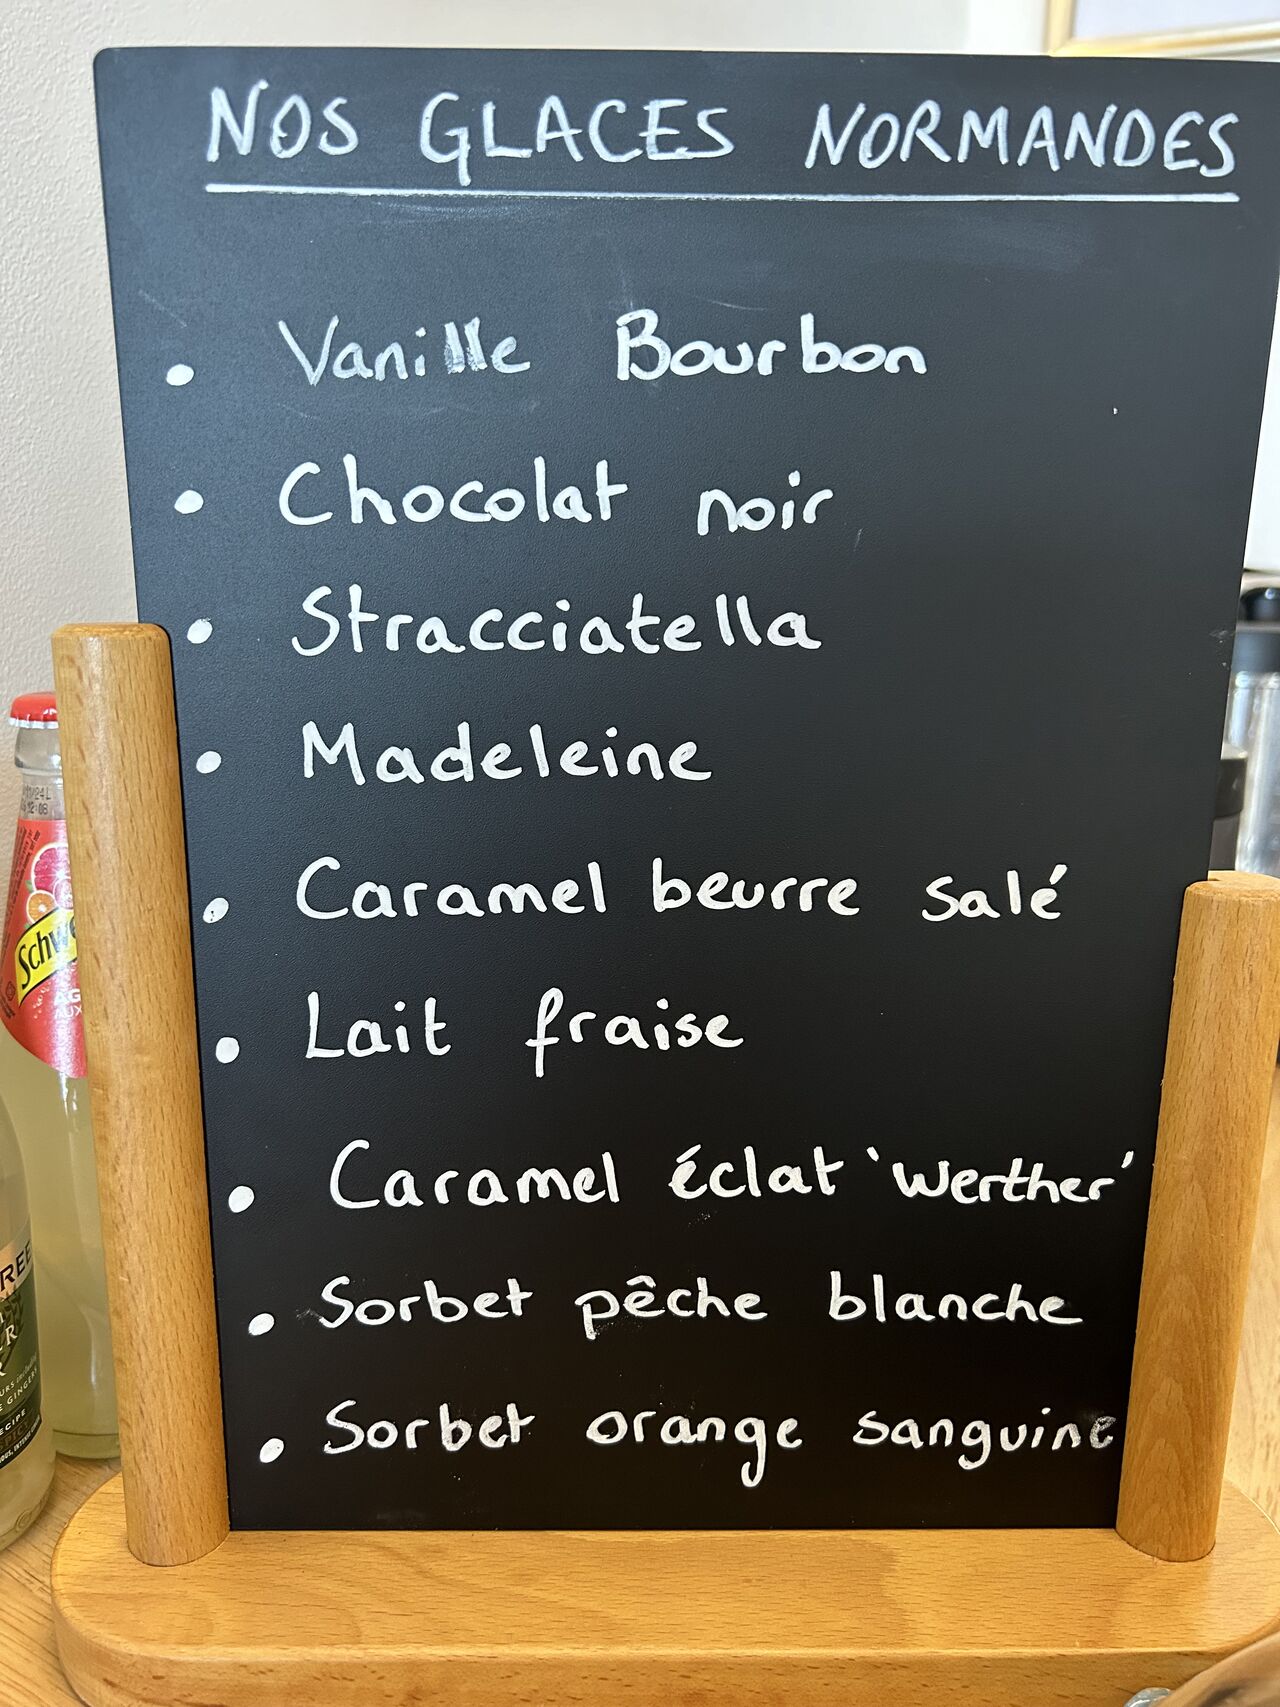 NOS GLACES NORMANDES
• Vanille Bourbon
• Chocolat noir
• Stracciatella
• Madeleine
• Caramel beurre salé
• Lait fraise
• Caramel éclat 'Werther'
• Sorbet pêche blanche
• Sorbet orange sanguine
Schwe
AG
AUX
REE
GINGERS